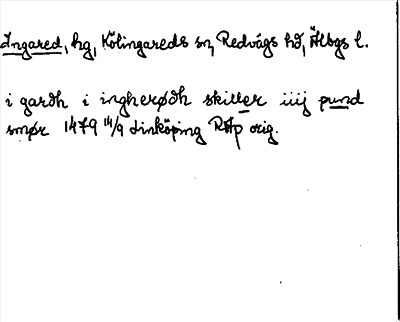 Ingared, hg, Kölingareds sn, Redvägs hd, Älvbgs l.
i gardh i ingherødh skiller iiij pund
smør 1479 14/9 Linköping RAp orig.